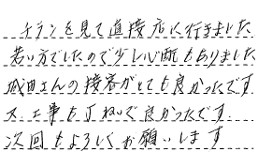 チラシを見て直接店に行きました
若い方でしたので少し心配もありました
成田さんの接客がとても良かったです
又、工事も丁ねいで良かったです。
次回もよろしくお願いします